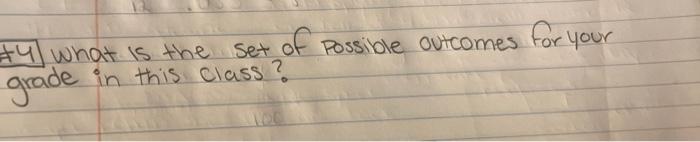 #4] What is the set of possible outcomes for your
grade in this class?